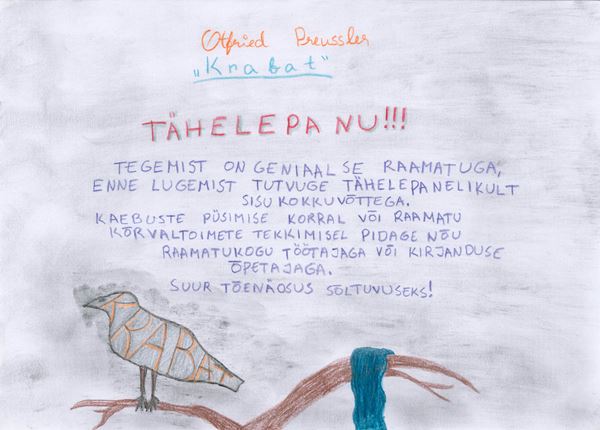 Otfried Preussler
„Krabat"
TÄHELEPANU!!!
TEGEMIST ON GENIAALSE RAAMATUGA,
ENNE LUGEMIST TUTVUGE TÄHELEPANELIKULT
SISUKOKKUVÕTTEGA.
KAEBUSTE PÜSIMISE KORRAL VÕI RAAMATU
KÕRVALTOIMETE TEKKIMISEL PIDAGE NÕU
RAAMATUKOGU TÖÖTAJAGA VÕI KIRJANDUSE
ÕPETAJAGA.
SUUR TÕENÄOSUS SÕLTUVUSEKS!
KRABAT